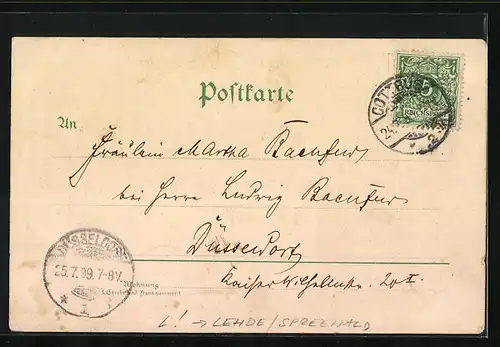 Postkarte
An
Fräulein Martha Bachfur
bei Herrn Ludwig Bachfur
Düsseldorf
Kaiserwilhelmstr. 20 I
Wohnung
5
COTTBUS
DÜSSELDORF
25.7.99.7-8V.
* 1 *
L! → LEHDE/SPREEWALD